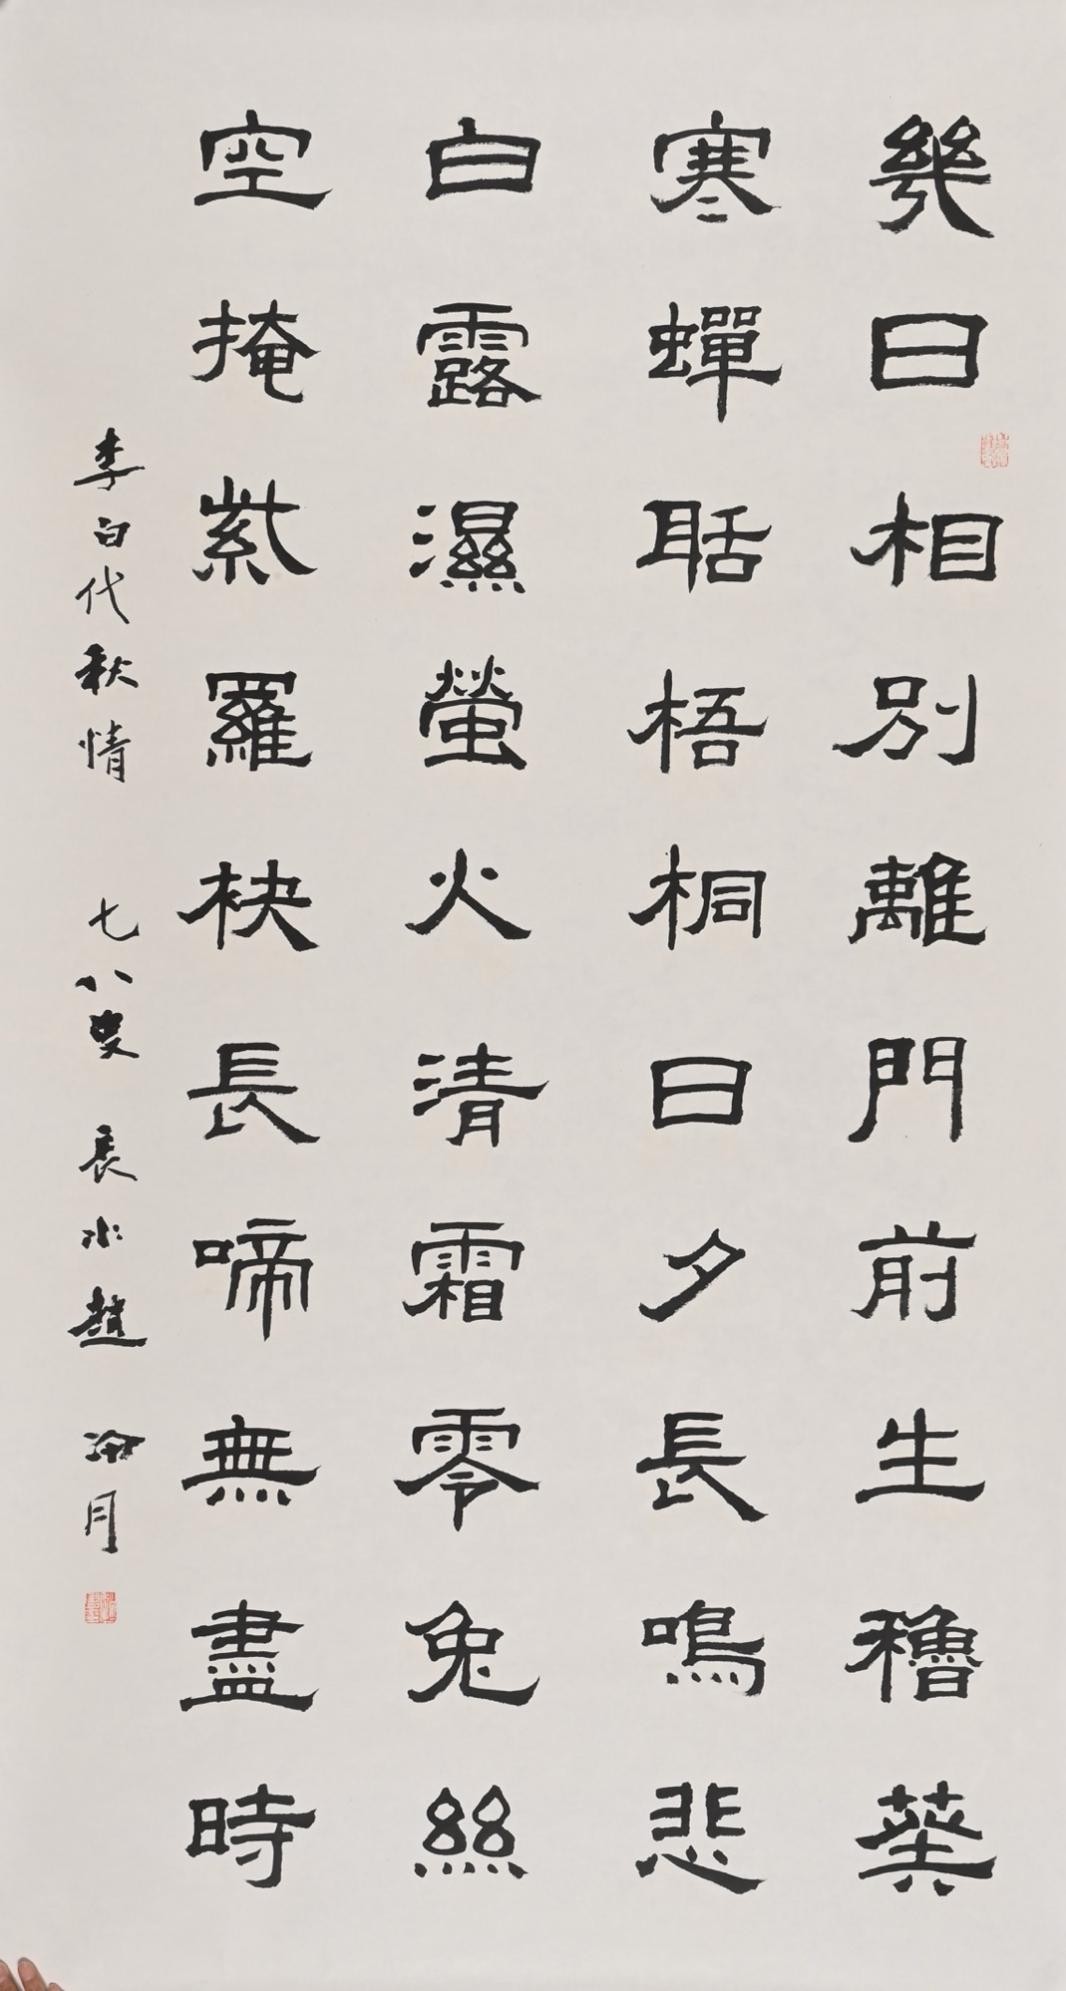 幾日相別離門前生穭葵
寒蟬聒梧桐日夕長鳴悲
白露濕螢火清霜零兔絲
空掩紫羅袂長啼無盡時
李白代秋情 七八叟 長水趙
月